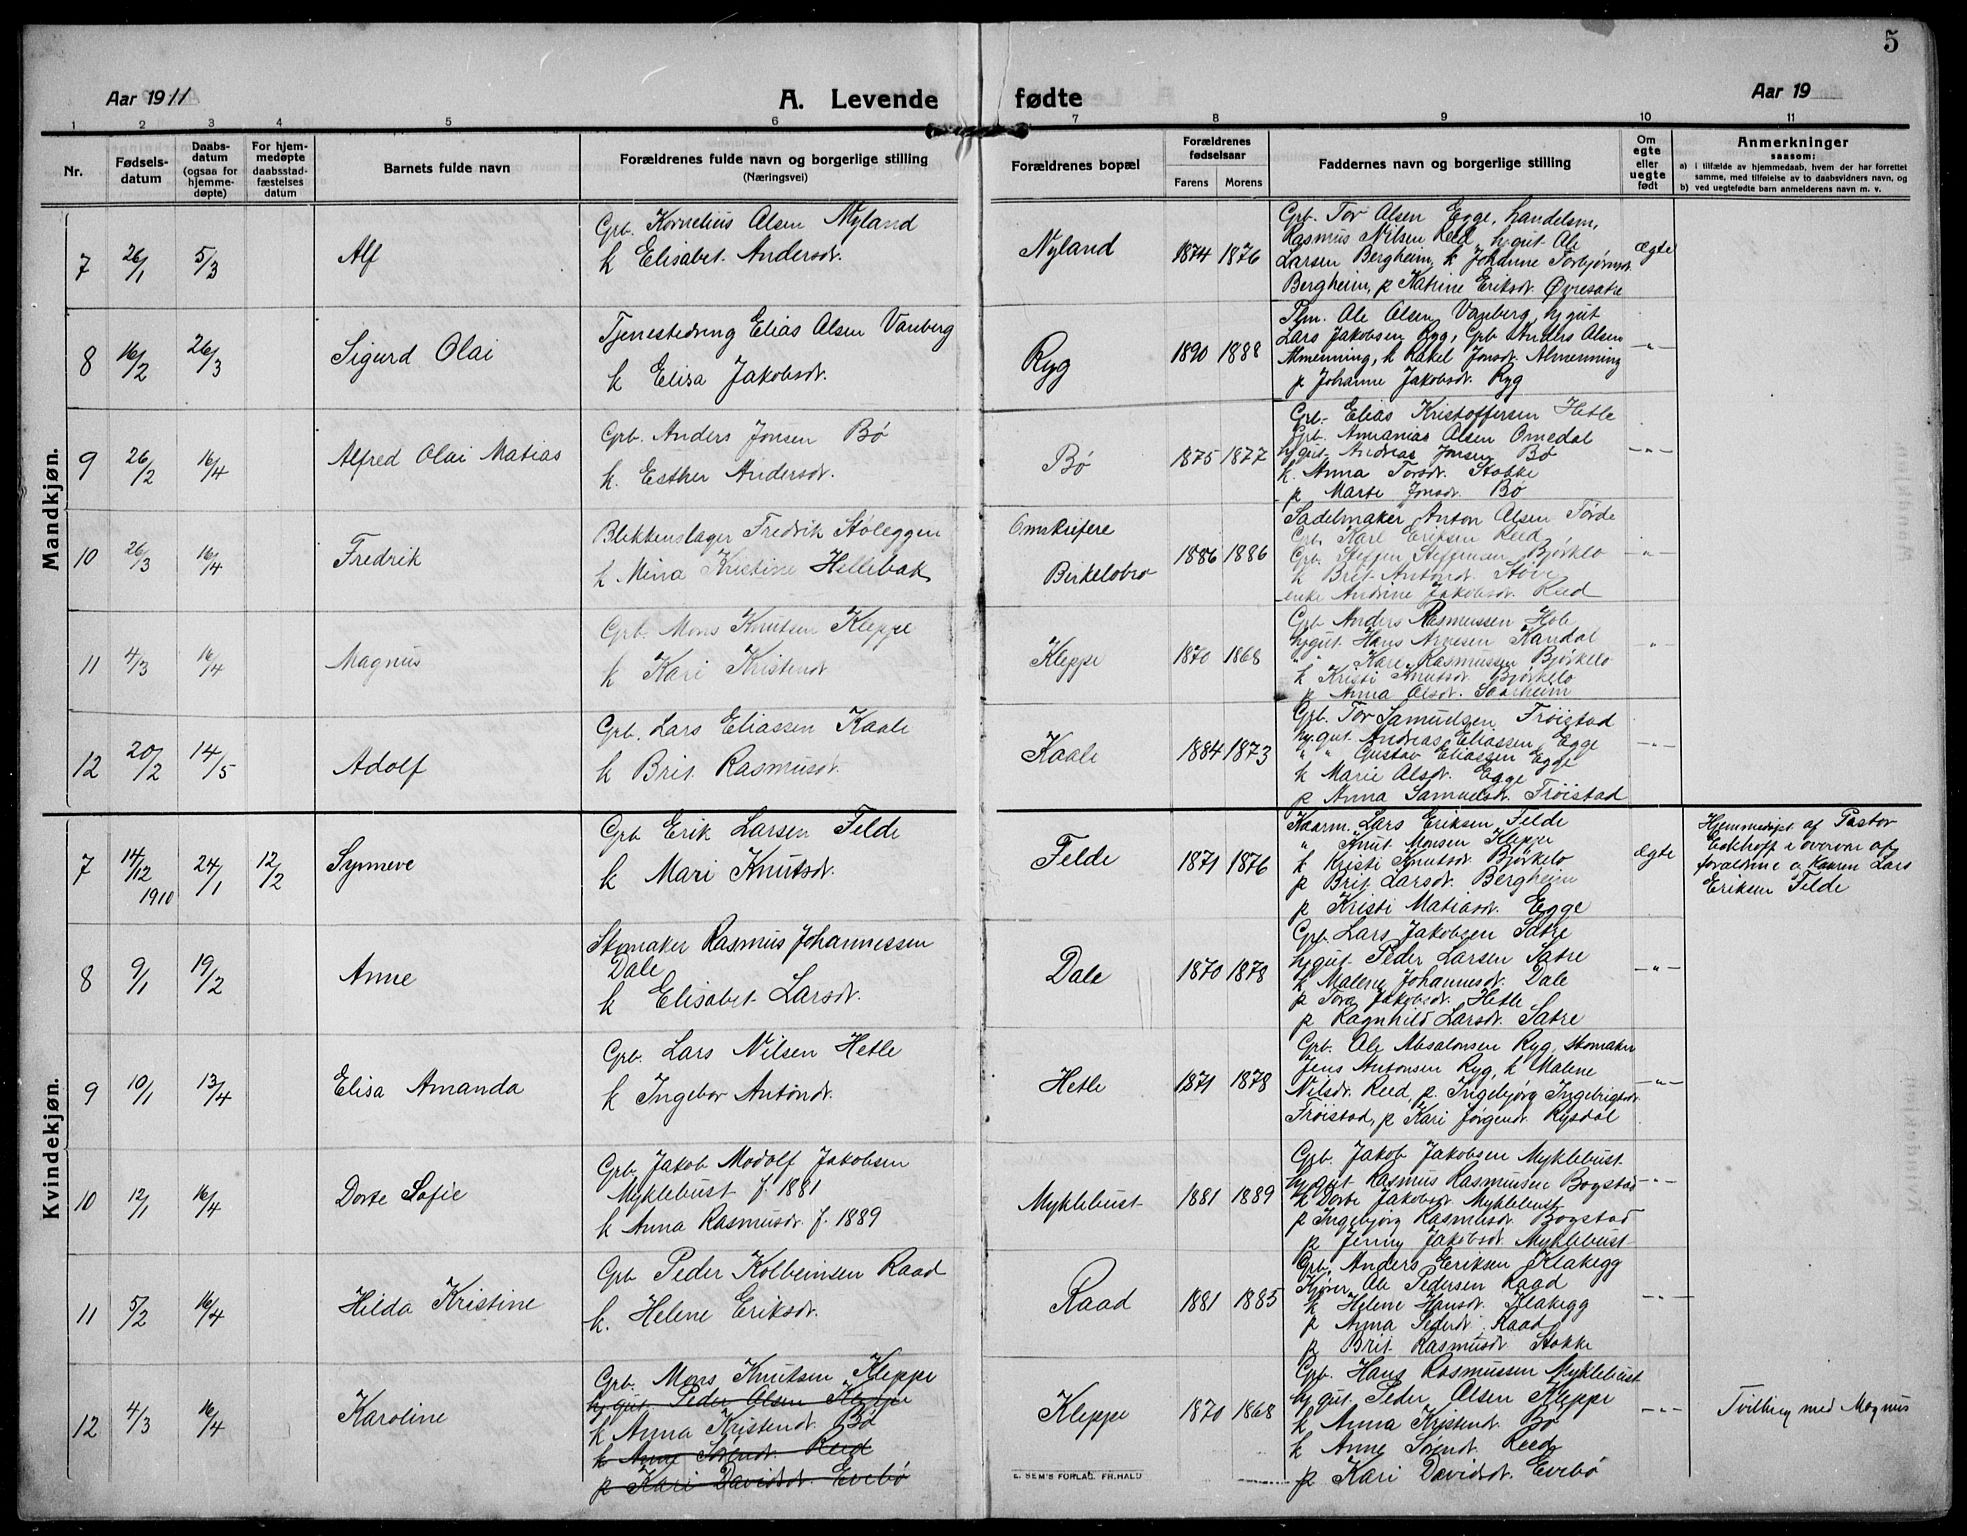 5
Aar 1911
A. Levende
fødte
Aar 19
1 2 3 4 5 6 7 8 9 10 11
Nr.
Fødsels-
datum
Daabs-
datum
(ogsaa for
hjemme-
døpte)
For hjem-
medøpte
daabsstad-
fæstelses
datum
Barnets fulde navn
Forældrenes fulde navn og borgerlige stilling
(Næringsvei)
Forældrenes bopæl
Forældrenes
fødselsaar
Farens Morens
Faddernes navn og borgerlige stilling
Om
egte
eller
uegte
født
Anmerkninger
saasom:
a) i tilfælde av hjemmedaab, hvem der har forrettet
samme, med tilføielse av to daabsvidners navn, og
b) ved uegtefødte barn anmelderens navn m. v.
Mandkjøn.
7 26/1 5/3 Alf
Grb. Kornelius Olsen Nyland
k Elisabet Andersdr.
Nyland 1874 1876
Grb. Tor Olsen Egge, handelsm,
Rasmus Nilsen Reed, hj.gut Ole
Larsen Bergheim, k Johanne Torbjørnsdr.
Bergheim, p Katrine Eriksdr. Øvresatre
Ægte
8 16/2 26/3 Sigurd Olai
Tjenestedreng Elias Olsen Vanberg
k Elisa Jakobsdr.
Ryg 1890 1888
Ole Olsen Vanberg, hj.gut
Lars Jakobsen Ryg, Grb Anders Olsen
Almenning, k Rakel Jonsdr. Almenning
p Johanne Jakobsdr. Ryg
-"-
9 26/2 16/4 Alfred Olai Matias
Grb. Anders Jonsen Bø
k. Esther Andersdr.
Bø 1875 1877
Grb. Elias Kristoffersen Hetle
Grb. Ananias Olsen Omedal
hj.gut Andreas Jonsen Bø
k. Anna Torsdr. Stokke
p Marte Jonsdr. Bø
-"-
10 26/3 16/4 Fredrik
Blikkenslager Fredrik Støleggen
k. Mina Kristine Hellebak
Omskifere
Birkelobro 1886 1886
Sadelmaker Anton Olsen Førde
Grb. Karl Eriksen Reed
Grb. Steffen Steffensen Bjørkelo
k Brit Antondr.
enke Andrine Jakobsdr. Reed
-"-
11 4/3 16/4 Magnus
Grb. Mons Knutsen Kleppe
k Kari Kristendr.
Kleppe 1870 1868
Grb Anders Rasmussen Hob
hj.gut Hans Kandal
" " Karl Rasmussen Bjørkelo
k Kristi Knutsdr. Bjørkelo
p Anna Olsdr. Saarheim
"
12 20/2 14/5 Adolf
Grb. Lars Eliassen Kaale
k Brit Rasmusdr.
Kaale 1884 1873
Grb. Tor Samuelsen Frøistad
hj.gut. Andreas Eliassen Egge
" " Gustav Eliassen Egge
k Marie Olsdr. Egge
p Anna Samuelsdr. Frøistad
-"-
Kvindekjøn.
7 14/12 1910 24/1 12/2 Synneve
Grb Erik Larsen Felde
k Mari Knutsdr.
Felde 1871 1876
Kaarm. Lars Eriksen Felde
" Knut Monsen Kleppe
k Kristi Knutsdr Bjørkelo
p Brit Larsdr. Bergheim
p Kristi Matiasdr. Egge
Ægte
Hjemmedøpt af Pastor
i overvær af
forældrene o kaarm Lars
Eriksen Felde
8 9/1 19/2 Anne
Skomaker Rasmus Johannessen
Dale
k Elisabet Larsdr.
Dale 1870 1878
Grb. Lars Jakobsen Satre
hj.gut Peder Larsen Satre
k Malene Johannesdr. Dale
p Tora Jakobsdr. Hetle
p Ragnhild Larsdr. Satre
-"-
9 10/1 13/4 Elisa Amanda
Grb. Lars Nilsen Hetle
k Ingebor Antondr.
Hetle 1871 1878
Grb. Ole Absalonsen Ryg, Skomaker
Jens Antonsen Ryg, k Malene
Nilsdr. Reed, p. Ingebjørg Ingebrigtsdr.
Frøistad, p Kari Jørgendr. Rysdal
-"-
10 12/1 16/4 Dorte Sofie
Grb. Jakob Modolf Jakobsen
Myklebust f. 1881
k Anna Rasmusdr. f. 1889
Myklebust 1881 1889
Grb. Jakob Jakobsen Myklebust
hj.gut Rasmus Rasmussen Bogstad
k Dorte Jakobsdr Myklebust
p Ingebjørg Rasmusdr. Bogstad
p Jenny Jakobsdr. Myklebust
-"-
11 5/2 16/4 Hilda Kristine
Grb Peder Kolbeinsen Raad
k. Helene Eriksdr.
Raad 1881 1885
Grb. Anders Eriksen Klakegg
Ole Pedersen Raad
k Helene Hansdr. Klakegg
p Anna Pederdr. Raad
p Brit Rasmusdr Stokke
-"-
12 4/3 16/4 Karoline
Grb. Mons Knutsen Kleppe
hj.gut. Peder Olsen Kleppe
k Anna Kristendr. Bø
k Anne Sørendr. Reed
p Kari Davidsdr. Evebø
Kleppe 1870 1868
Grb. Hans Rasmussen Myklebust
hj.gut Peder Olsen Kleppe
k Anna Kristendr. Bø
k Anne Sørendr. Reed
p Kari Davidsdr. Evebø
-"-
Tvilling med Magnus
E. SEM'S FORLAG. FR.HALD